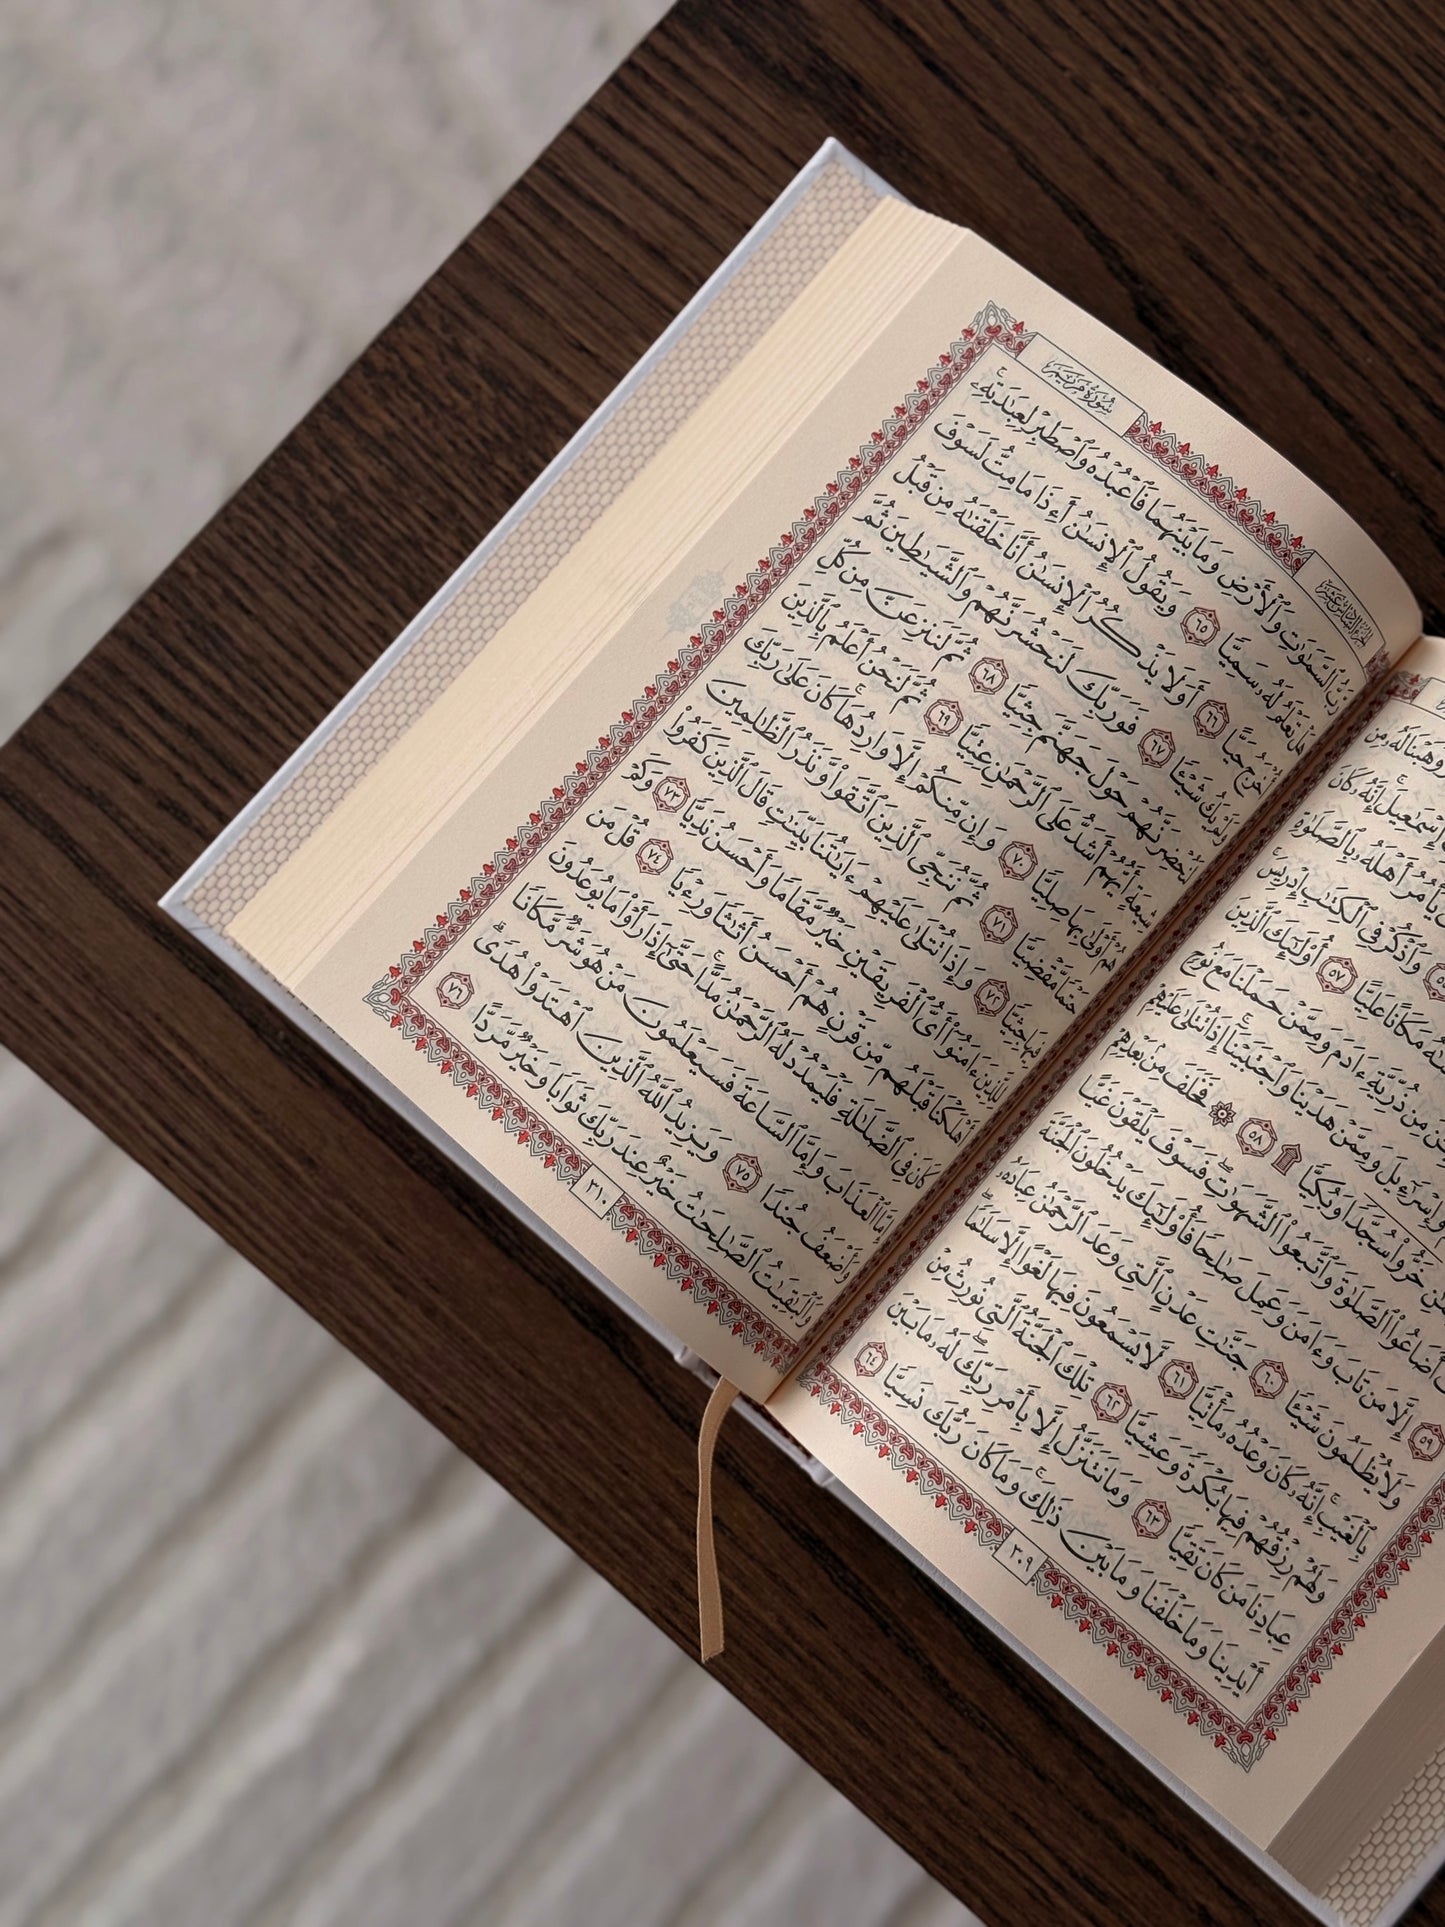 وَوَهَبْنَا لَهُۥ مِن
إِسْمَٰعِيلَ ۚ إِنَّهُۥ كَانَ
يَأْمُرُ أَهْلَهُۥ بِٱلصَّلَوٰةِ
وَٱذْكُرْ فِى ٱلْكِتَٰبِ إِدْرِيسَ ۚ
مَكَانًا عَلِيًّا ٥٧ أُو۟لَٰٓئِكَ ٱلَّذِينَ
مِن ذُرِّيَّةِ ءَادَمَ وَمِمَّنْ حَمَلْنَا مَعَ نُوحٍ
وَإِسْرَٰٓءِيلَ وَمِمَّنْ هَدَيْنَا وَٱجْتَبَيْنَآ ۚ إِذَا تُتْلَىٰ عَلَيْهِمْ
خَرُّوا۟ سُجَّدًا وَبُكِيًّا ۩ ٥٨ ۞ فَخَلَفَ مِنۢ بَعْدِهِمْ
أَضَاعُوا۟ ٱلصَّلَوٰةَ وَٱتَّبَعُوا۟ ٱلشَّهَوَٰتِ ۖ فَسَوْفَ يَلْقَوْنَ غَيًّا
٥٩ إِلَّا مَن تَابَ وَءَامَنَ وَعَمِلَ صَٰلِحًا فَأُو۟لَٰٓئِكَ يَدْخُلُونَ ٱلْجَنَّةَ
وَلَا يُظْلَمُونَ شَيْـًٔا ٦٠ جَنَّٰتِ عَدْنٍ ٱلَّتِى وَعَدَ ٱلرَّحْمَٰنُ عِبَادَهُۥ
بِٱلْغَيْبِ ۚ إِنَّهُۥ كَانَ وَعْدُهُۥ مَأْتِيًّا ٦١ لَّا يَسْمَعُونَ فِيهَا لَغْوًا إِلَّا سَلَٰمًا ۖ
وَلَهُمْ رِزْقُهُمْ فِيهَا بُكْرَةً وَعَشِيًّا ٦٢ تِلْكَ ٱلْجَنَّةُ ٱلَّتِى نُورِثُ مِنْ
عِبَادِنَا مَن كَانَ تَقِيًّا ٦٣ وَمَا نَتَنَزَّلُ إِلَّا بِأَمْرِ رَبِّكَ ۖ لَهُۥ مَا بَيْنَ
أَيْدِينَا وَمَا خَلْفَنَا وَمَا بَيْنَ ذَٰلِكَ ۚ وَمَا كَانَ رَبُّكَ نَسِيًّا ٦٤
٣٠٩
الجزء السادس عشر
سورة مريم
رَّبُّ ٱلسَّمَٰوَٰتِ وَٱلْأَرْضِ وَمَا بَيْنَهُمَا فَٱعْبُدْهُ وَٱصْطَبِرْ لِعِبَٰدَتِهِۦ ۚ
هَلْ تَعْلَمُ لَهُۥ سَمِيًّا ٦٥ وَيَقُولُ ٱلْإِنسَٰنُ أَءِذَا مَا مِتُّ لَسَوْفَ
أُخْرَجُ حَيًّا ٦٦ أَوَلَا يَذْكُرُ ٱلْإِنسَٰنُ أَنَّا خَلَقْنَٰهُ مِن قَبْلُ
وَلَمْ يَكُ شَيْـًٔا ٦٧ فَوَرَبِّكَ لَنَحْشُرَنَّهُمْ وَٱلشَّيَٰطِينَ ثُمَّ
لَنُحْضِرَنَّهُمْ حَوْلَ جَهَنَّمَ جِثِيًّا ٦٨ ثُمَّ لَنَنزِعَنَّ مِن كُلِّ
شِيعَةٍ أَيُّهُمْ أَشَدُّ عَلَى ٱلرَّحْمَٰنِ عِتِيًّا ٦٩ ثُمَّ لَنَحْنُ أَعْلَمُ بِٱلَّذِينَ
هُمْ أَوْلَىٰ بِهَا صِلِيًّا ٧٠ وَإِن مِّنكُمْ إِلَّا وَارِدُهَا ۚ كَانَ عَلَىٰ رَبِّكَ
حَتْمًا مَّقْضِيًّا ٧١ ثُمَّ نُنَجِّى ٱلَّذِينَ ٱتَّقَوا۟ وَّنَذَرُ ٱلظَّٰلِمِينَ
فِيهَا جِثِيًّا ٧٢ وَإِذَا تُتْلَىٰ عَلَيْهِمْ ءَايَٰتُنَا بَيِّنَٰتٍ قَالَ ٱلَّذِينَ كَفَرُوا۟
لِلَّذِينَ ءَامَنُوٓا۟ أَىُّ ٱلْفَرِيقَيْنِ خَيْرٌ مَّقَامًا وَأَحْسَنُ نَدِيًّا ٧٣ وَكَمْ
أَهْلَكْنَا قَبْلَهُم مِّن قَرْنٍ هُمْ أَحْسَنُ أَثَٰثًا وَرِءْيًا ٧٤ قُلْ مَن
كَانَ فِى ٱلضَّلَٰلَةِ فَلْيَمْدُدْ لَهُ ٱلرَّحْمَٰنُ مَدًّا ۚ حَتَّىٰٓ إِذَا رَأَوْا۟ مَا يُوعَدُونَ
إِمَّا ٱلْعَذَابَ وَإِمَّا ٱلسَّاعَةَ فَسَيَعْلَمُونَ مَنْ هُوَ شَرٌّ مَّكَانًا
وَأَضْعَفُ جُندًا ٧٥ وَيَزِيدُ ٱللَّهُ ٱلَّذِينَ ٱهْتَدَوْا۟ هُدًى ۗ
وَٱلْبَٰقِيَٰتُ ٱلصَّٰلِحَٰتُ خَيْرٌ عِندَ رَبِّكَ ثَوَابًا وَخَيْرٌ مَّرَدًّا ٧٦
٣١٠